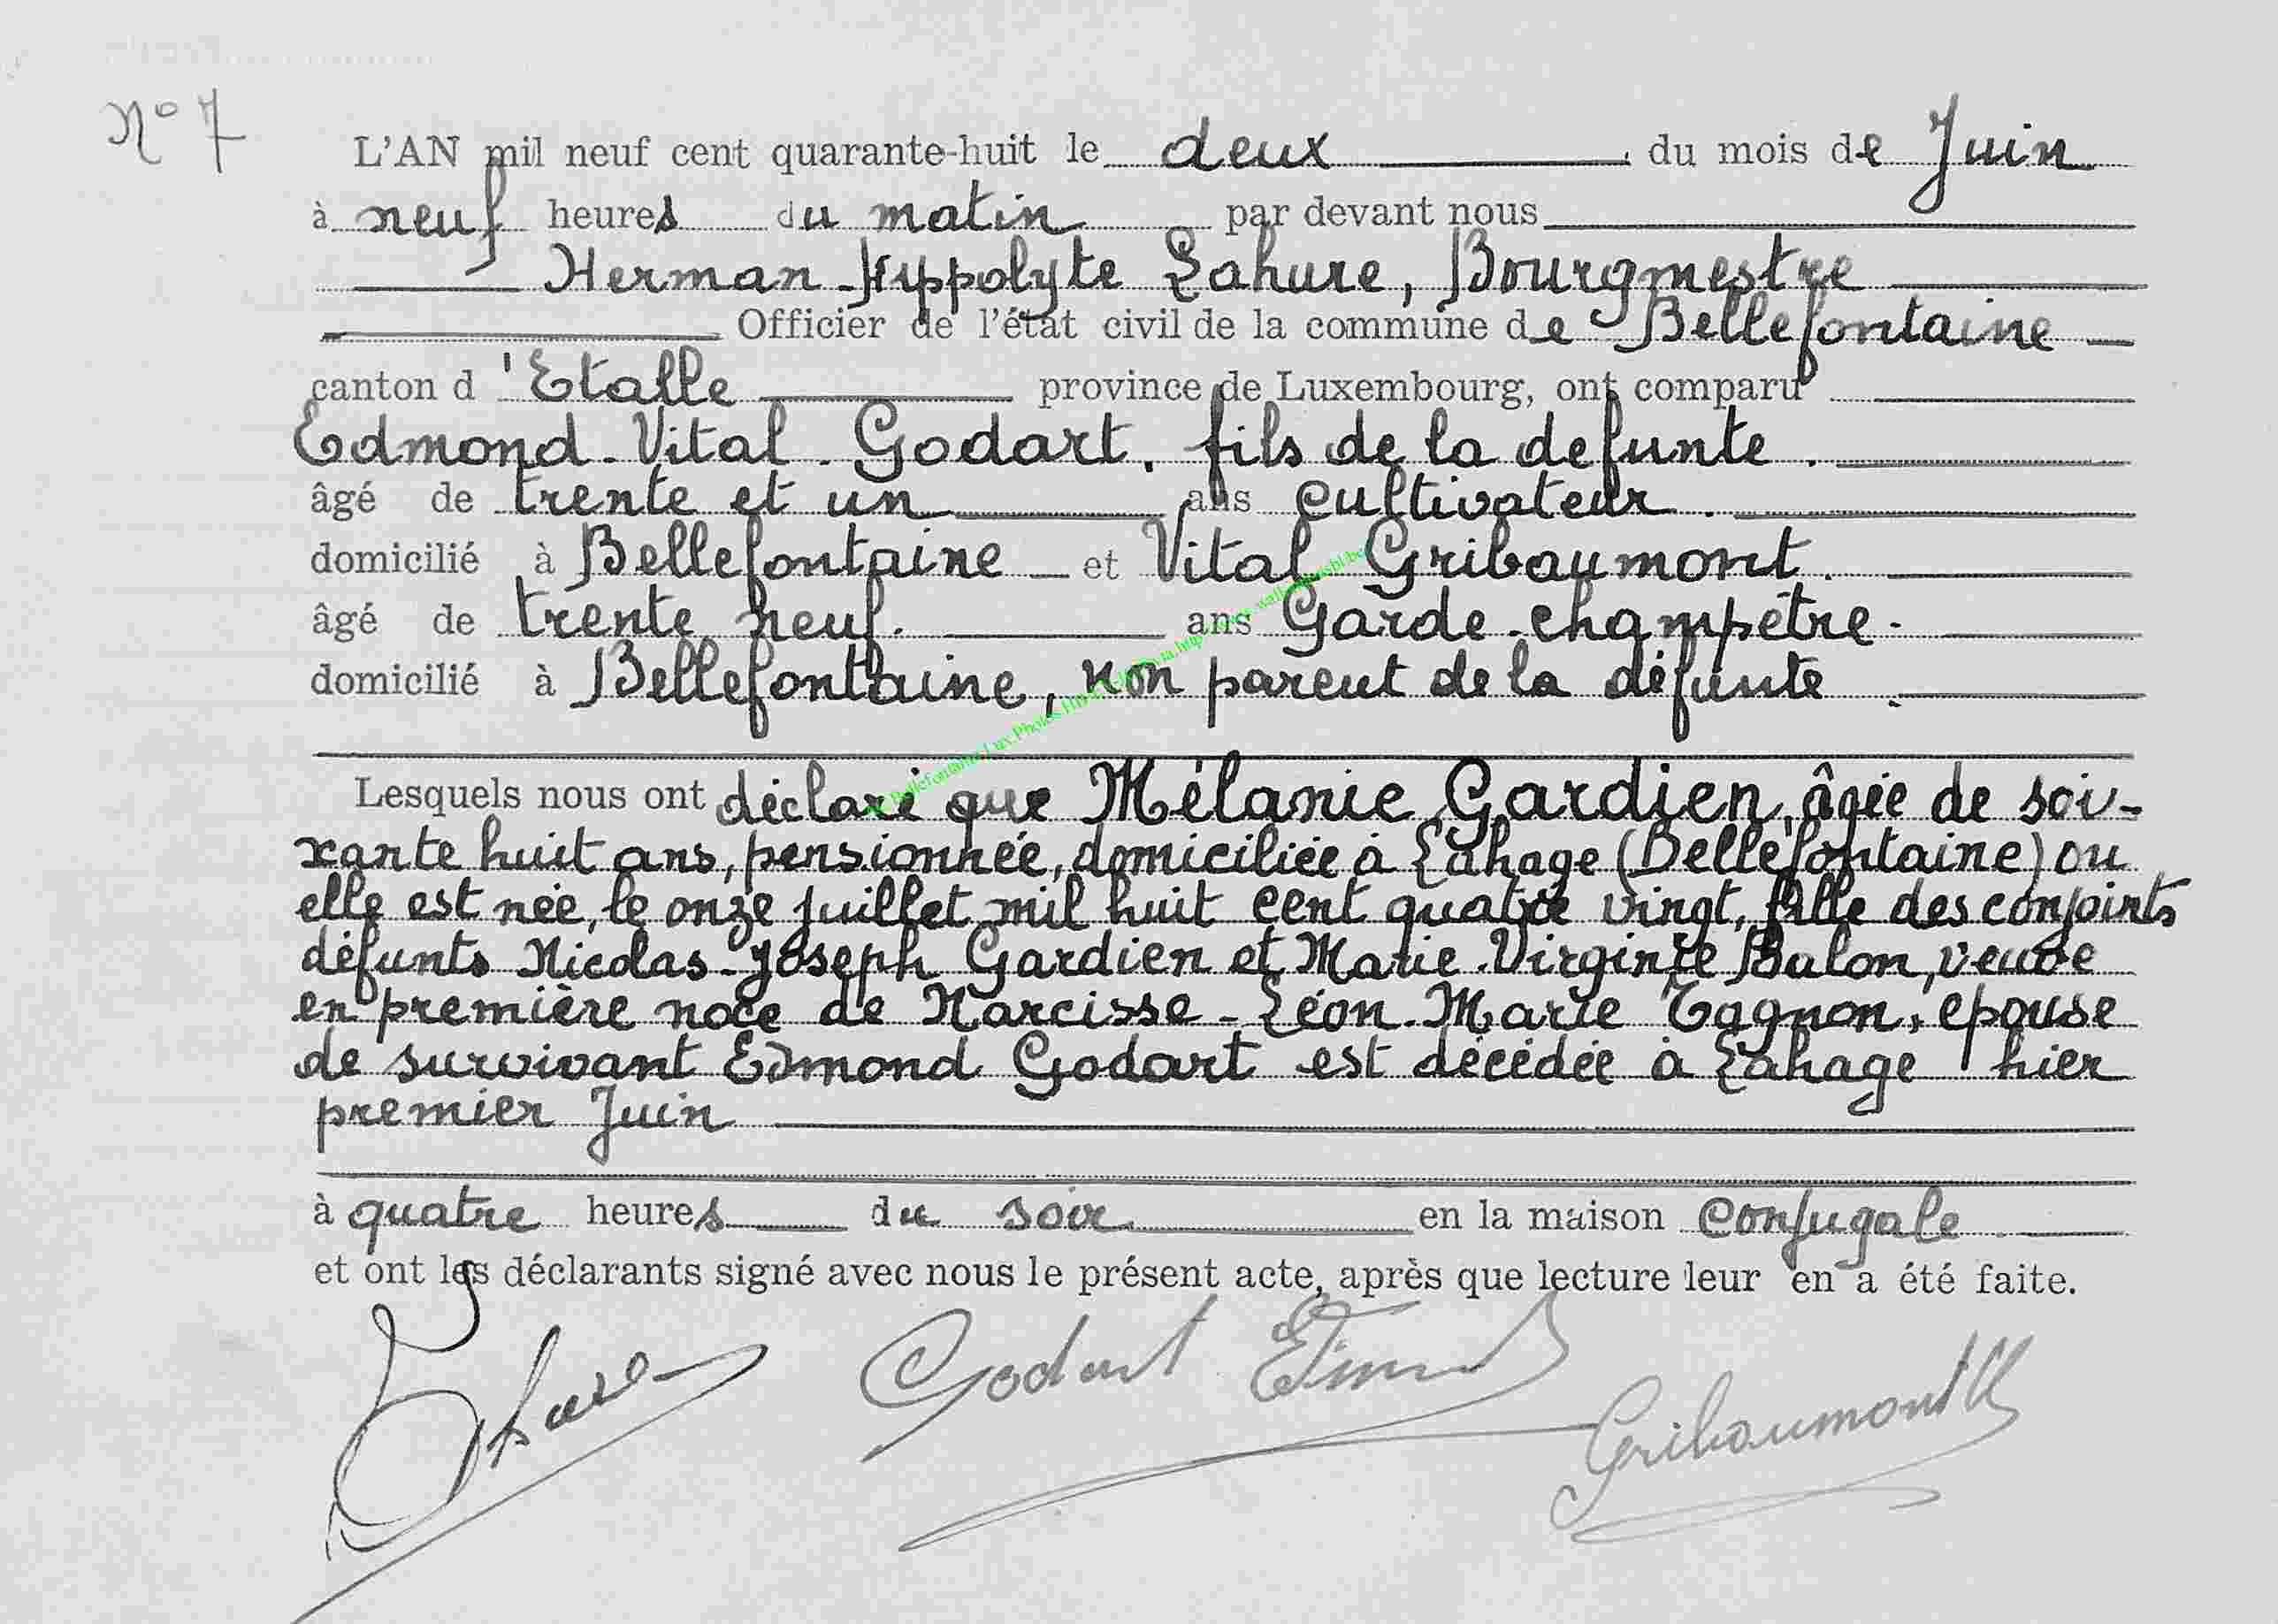 N° 7
L'AN mil neuf cent quarante-huit le deux du mois de Juin
à neuf heures du matin par devant nous
Herman-Hyppolyte Lahure, Bourgmestre
Officier de l'état civil de la commune de Bellefontaine
canton d'Etalle province de Luxembourg, ont comparu
Edmond-Vital-Godart, fils de la defunte.
âgé de trente et un ans cultivateur.
domicilié à Bellefontaine et Vital Gribaumont.
âgé de trente neuf. ans Garde-champêtre.
domicilié à Bellefontaine, non parent de la défunte.
Lesquels nous ont déclaré que Mélanie Gardien, âgée de soi-
xante huit ans, pensionnée, domiciliée à Lahage (Bellefontaine) ou
elle est née, le onze juillet mil huit cent quatre vingt, fille des conjoints
défunts Nicolas-Joseph Gardien et Marie-Virginie Bulon, veuve
en première noce de Narcisse-Léon-Marie Tagnon, epouse
de survivant Edmond Godart est décédée à Lahage hier
premier Juin
à quatre heures du soir en la maison conjugale
et ont les déclarants signé avec nous le présent acte, après que lecture leur en a été faite.
Lahure Godart Edmond
Gribaumont V